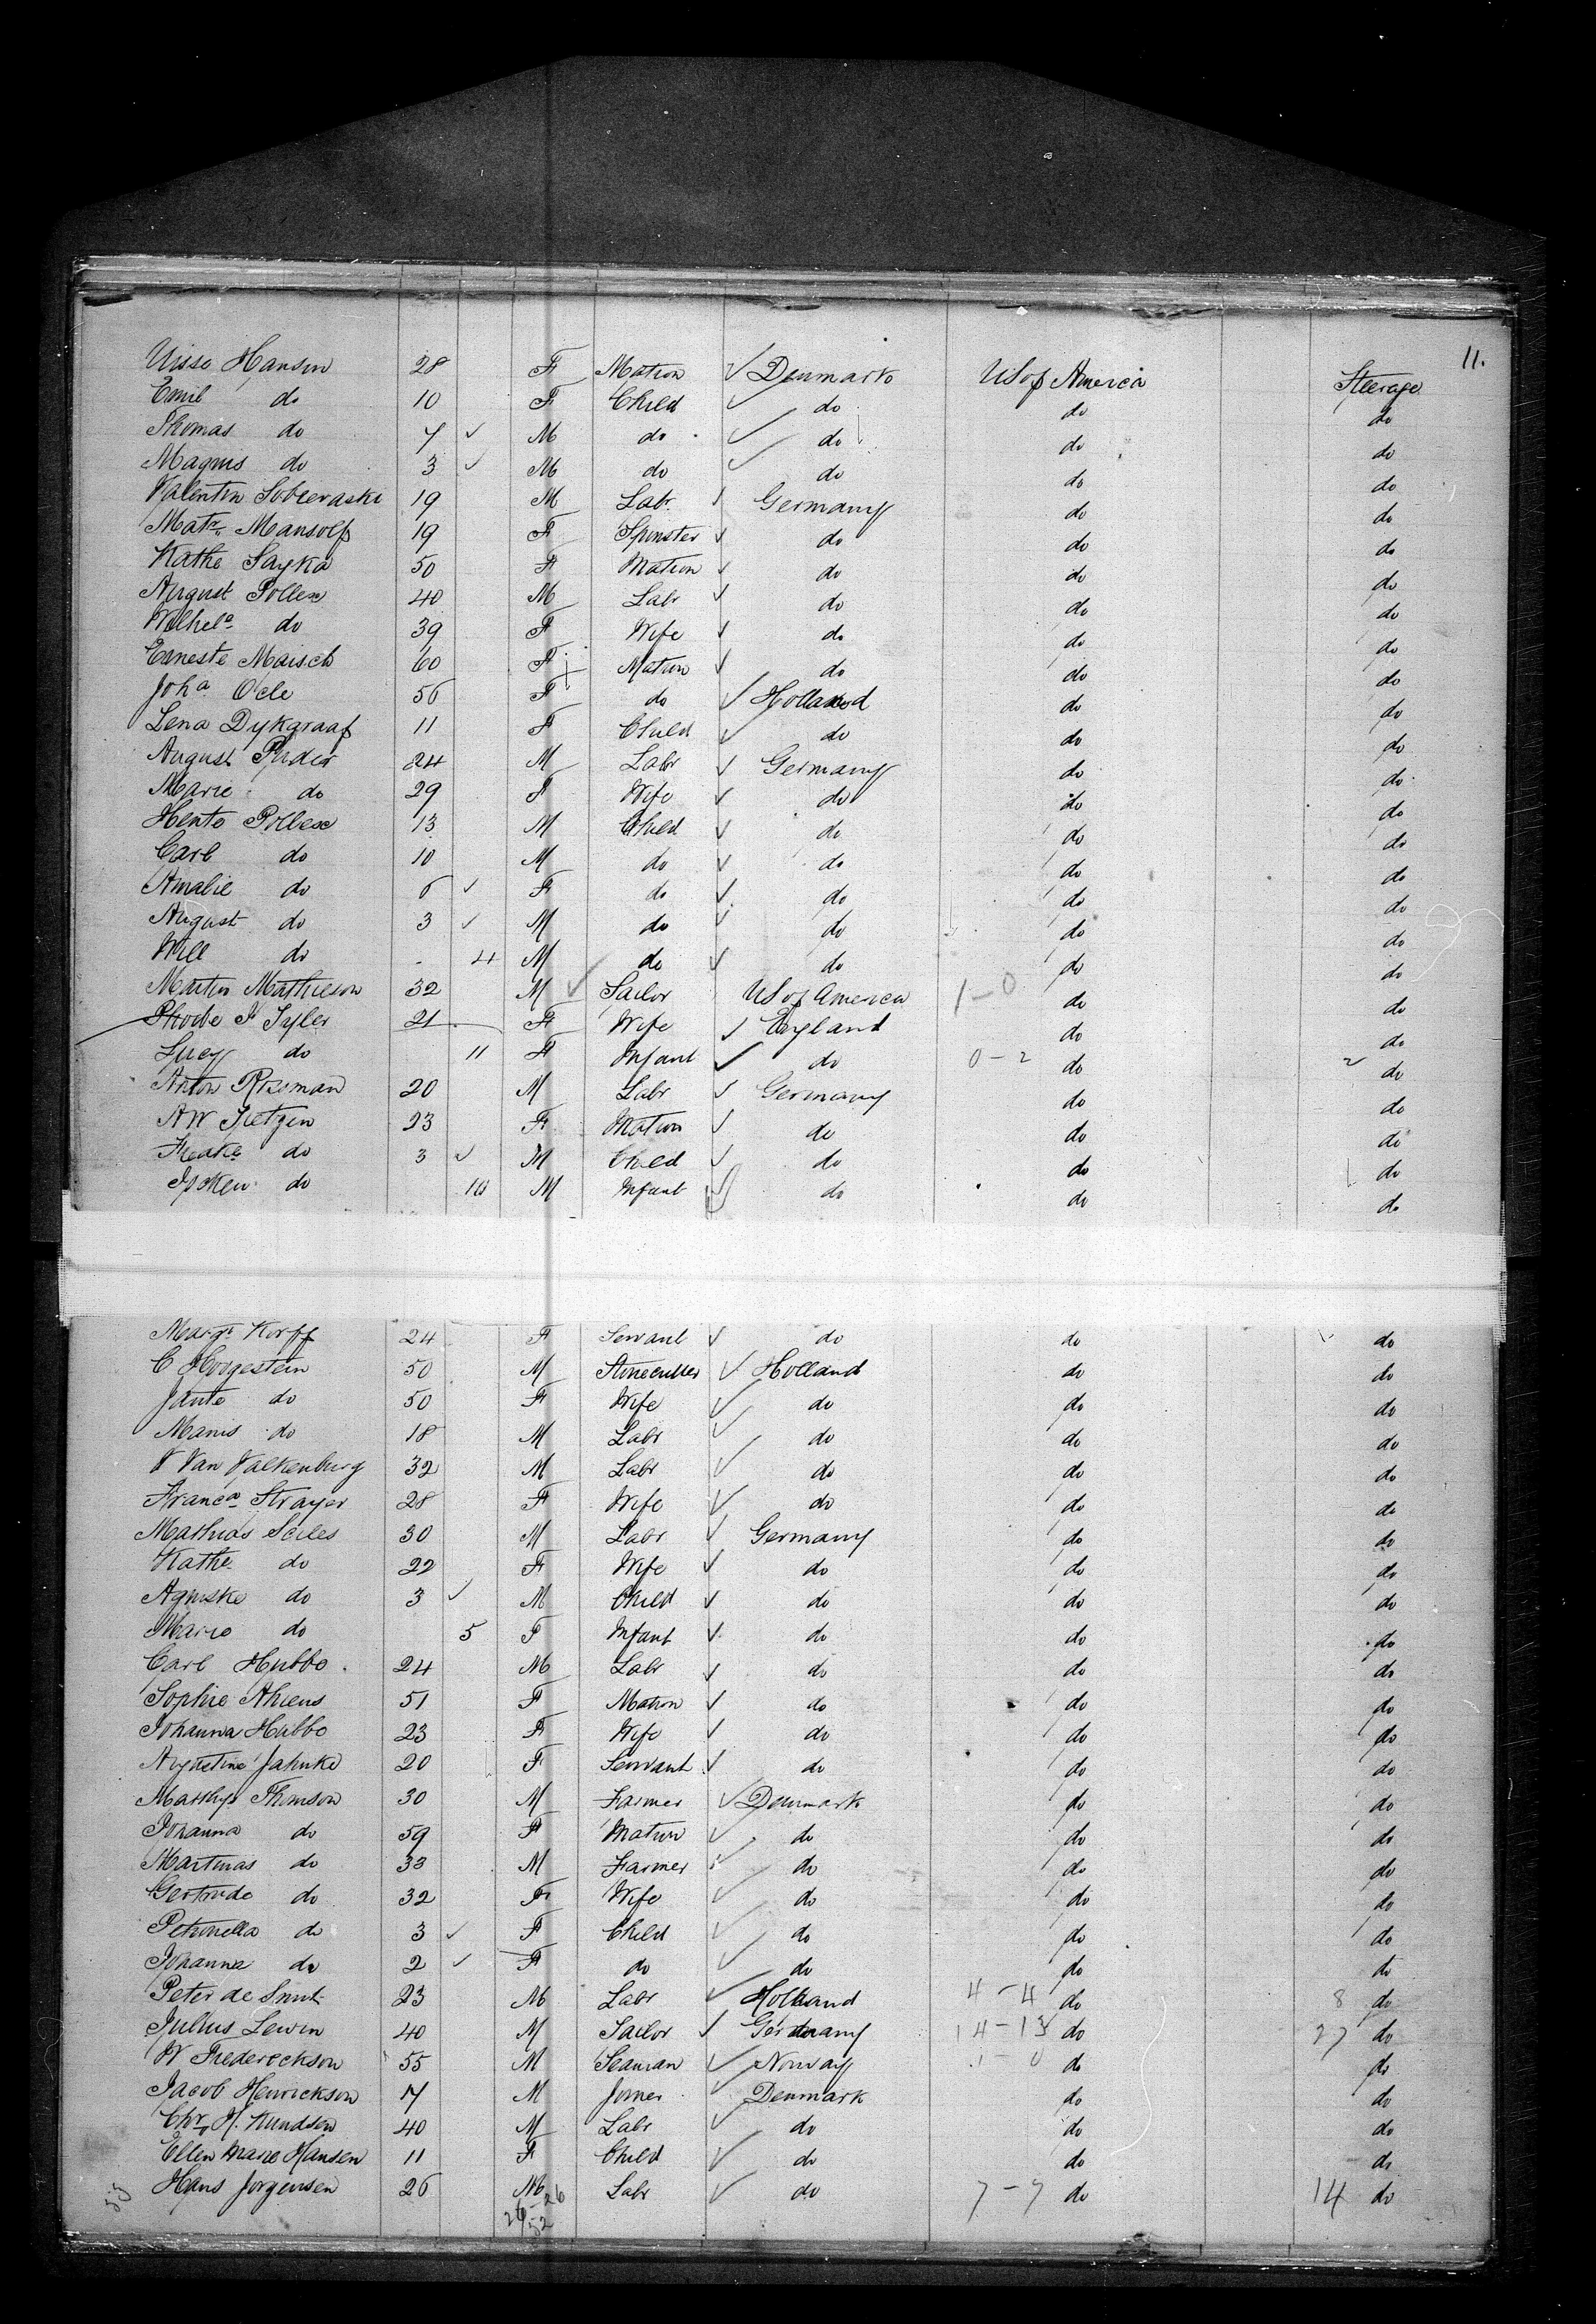 11.
Hansen 28 F Matron ✓ Denmark US of America Steerage
Emil do 10 F Child ✓ do do do
Thomas do 7 ✓ M do ✓ do do do
Magnus do 3 ✓ M do ✓ do do do
Valentin Sobieraski 19 M Labr ✓ Germany do do
Mansolf 19 F Spinster ✓ do do do
Kathe Sayka 50 F Matron ✓ do do do
August Pollex 40 M Labr ✓ do do do
Wilhela do 39 F Wife ✓ do do do
Erneste Maisch 60 F Matron ✓ do do do
Joha 56 F do ✓ Holland do do
Lena Dykgraaf 11 F Child ✓ do do do
August 24 M Labr ✓ Germany do do
Marie do 29 F Wife ✓ do do do
Pollex 13 M Child ✓ do do do
Carl do 10 M do ✓ do do do
Amalie do 6 ✓ F do ✓ do do do
August do 3 ✓ M do ✓ do do do
Will do 4 M do ✓ do do do
Martin Mathieson 32 M ✓ Sailor US of America 1-0 do do
Phoebe J Tyler 21 F Wife ✓ England do do
Lucy do 11 F Infant ✓ do 0-2 do 2 do
Anton Roseman 20 M Labr ✓ Germany do do
AW 23 F Matron ✓ do do do
do 3 ✓ M Child ✓ do do do
do 10 M Infant ✓ do do do
Margt Korff 24 F Servant ✓ do do do
C Hoogestein 50 M Stonecutter ✓ Holland do do
Jante do 50 F Wife ✓ do do do
Manis do 18 M Labr ✓ do do do
V Van Valkenburg 32 M Labr ✓ do do do
Franca Strayer 28 F Wife ✓ do do do
Mathias Seiles 30 M Labr ✓ Germany do do
Kathe do 22 F Wife ✓ do do do
Agniske do 3 ✓ M Child ✓ do do do
Marie do 5 F Infant ✓ do do do
Carl Hubbe 24 M Labr ✓ do do do
Sophie Ahrens 51 F Matron ✓ do do do
Johanna Hubbe 23 F Wife ✓ do do do
Augustine Jahnke 20 F Servant ✓ do do do
Matthys Thomson 30 M Farmer ✓ Denmark do do
Johanna do 59 F Matron ✓ do do do
Martinas do 33 M Farmer ✓ do do do
Gertrude do 32 F Wife ✓ do do do
Petronella do 3 ✓ F Child ✓ do do do
Johanna do 2 ✓ F do ✓ do do do
Peter de Smut 23 M Labr ✓ Holland 4-4 do 8 do
Julius Lewin 40 M Tailor ✓ Germany 14-13 do 27 do
W Frederickson 55 M Seaman ✓ Norway 1-0 do do
Jacob Henrickson 17 M Joiner ✓ Denmark do do
Chr H. Knudsen 40 M Labr ✓ do do do
Ellen Marie Hansen 11 F Child ✓ do do do
Hans Jorgensen 26 M Labr ✓ do 7-7 do 14 do
26-26
52